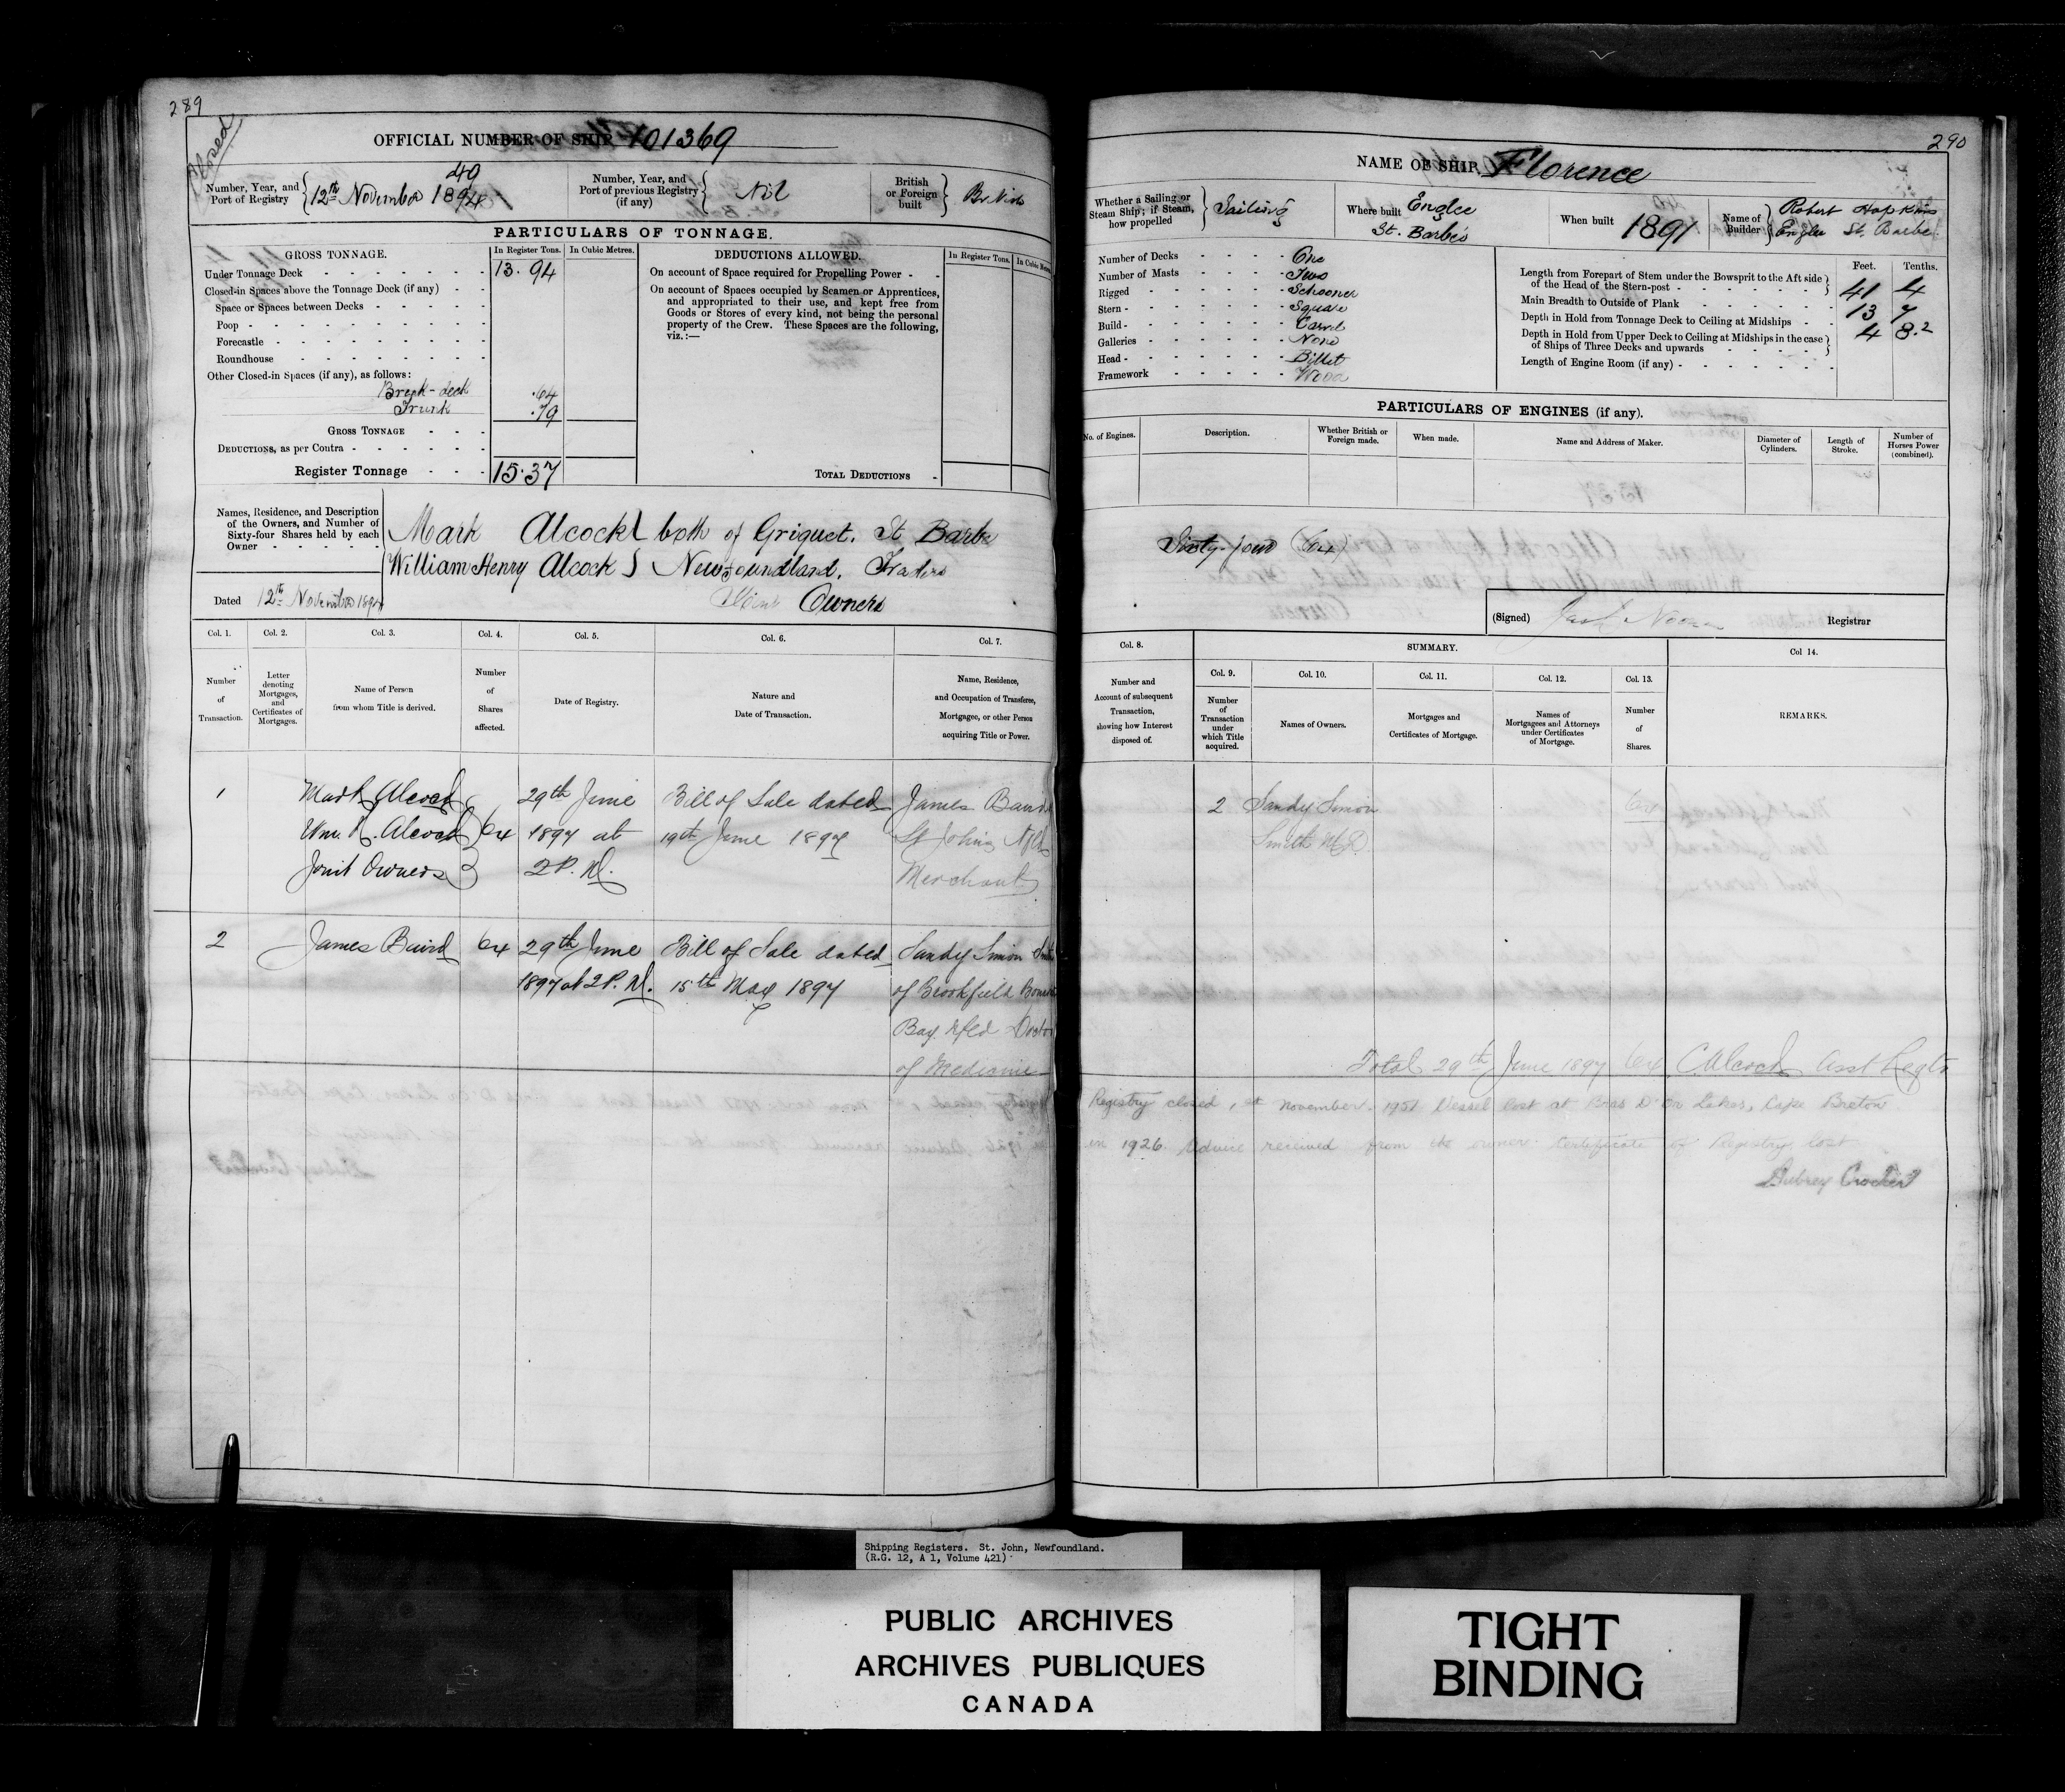 289
Closed
OFFICIAL NUMBER OF SHIP 101369
Number, Year, and
Port of Registry
40
12th November 1894
Number, Year, and
Port of previous Registry
(if any)
Nil
British
or Foreign
built
British
PARTICULARS OF TONNAGE.
GROSS TONNAGE.
In Register Tons.
In Cubic Metres.
Under Tonnage Deck 13.94
Closed-in Spaces above the Tonnage Deck (if any)
Space or Spaces between Decks
Poop
Forecastle
Roundhouse
Other Closed-in Spaces (if any), as follows:
Break-deck .64
Trunk .79
GROSS TONNAGE
DEDUCTIONS, as per Contra
Register Tonnage 15.37
DEDUCTIONS ALLOWED.
In Register Tons.
On account of Space required for Propelling Power
On account of Spaces occupied by Seamen or Apprentices,
and appropriated to their use, and kept free from
Goods or Stores of every kind, not being the personal
property of the Crew. These Spaces are the following,
viz.:—
TOTAL DEDUCTIONS
Names, Residence, and Description
of the Owners, and Number of
Sixty-four Shares held by each
Owner
Mark Alcock both of Griquet. St Barbe
William Henry Alcock Newfoundland. Traders
Joint Owners
Dated 12th November 1894
Col. 1.
Number
of
Transaction.
Col. 2.
Letter
denoting
Mortgages,
and
Certificates of
Mortgages.
Col. 3.
Name of Person
from whom Title is derived.
Col. 4.
Number
of
Shares
affected.
Col. 5.
Date of Registry.
Col. 6.
Nature and
Date of Transaction.
Col. 7.
Name, Residence,
and Occupation of Transferee,
Mortgagee, or other Person
acquiring Title or Power.
1 Mark Alcock 29th June Bill of Sale dated James Baird
Wm. H. Alcock 64 1897 at 19th June 1897 St Johns Nfld
Joint Owners 2 P. M. Merchant
2 James Baird 64 29th June Bill of Sale dated Sandy Simon Smith
1897 at 2 P. M. 15th May 1897 of Brookfield
Bay Nfld Doctor
of Medicine
290
NAME OF SHIP Florence
Whether a Sailing or
Steam Ship; if Steam,
how propelled
Sailing
Where built
Englee
St. Barbe's
When built
1891
Name of
Builder
Robert Hopkins
Englee St. Barbe
Number of Decks One
Number of Masts Two
Rigged Schooner
Stern Square
Build Carvel
Galleries None
Head Billet
Framework Wood
Feet. Tenths.
Length from Forepart of Stem under the Bowsprit to the Aft side
of the Head of the Stern-post 41 4
Main Breadth to Outside of Plank 13 7
Depth in Hold from Tonnage Deck to Ceiling at Midships 4 8.2
Depth in Hold from Upper Deck to Ceiling at Midships in the case
of Ships of Three Decks and upwards
Length of Engine Room (if any)
PARTICULARS OF ENGINES (if any).
No. of Engines.
Description.
Whether British or
Foreign made.
When made.
Name and Address of Maker.
Diameter of
Cylinders.
Length of
Stroke.
Number of
Horses Power
(combined).
Sixty-four (64)
(Signed) Registrar
Col. 8.
Number and
Account of subsequent
Transaction,
showing how Interest
disposed of.
SUMMARY.
Col. 9.
Number
of
Transaction
under
which Title
acquired.
Col. 10.
Names of Owners.
Col. 11.
Mortgages and
Certificates of Mortgage.
Col. 12.
Names of
Mortgagees and Attorneys
under Certificates
of Mortgage.
Col. 13.
Number
of
Shares.
Col 14.
REMARKS.
2 Sandy Simon 64
Smith M.D.
Total 29th June 1897 64 C Alcock Asst Regtr
Registry closed, November 1951 Vessel lost at Bras D'Or Lakes, Cape Breton
in 1926. Advice received from the owner. Certificate of Registry lost
Aubrey Crocker
Shipping Registers. St. John, Newfoundland.
(R.G. 12, A 1, Volume 421)
PUBLIC ARCHIVES
ARCHIVES PUBLIQUES
CANADA
TIGHT
BINDING